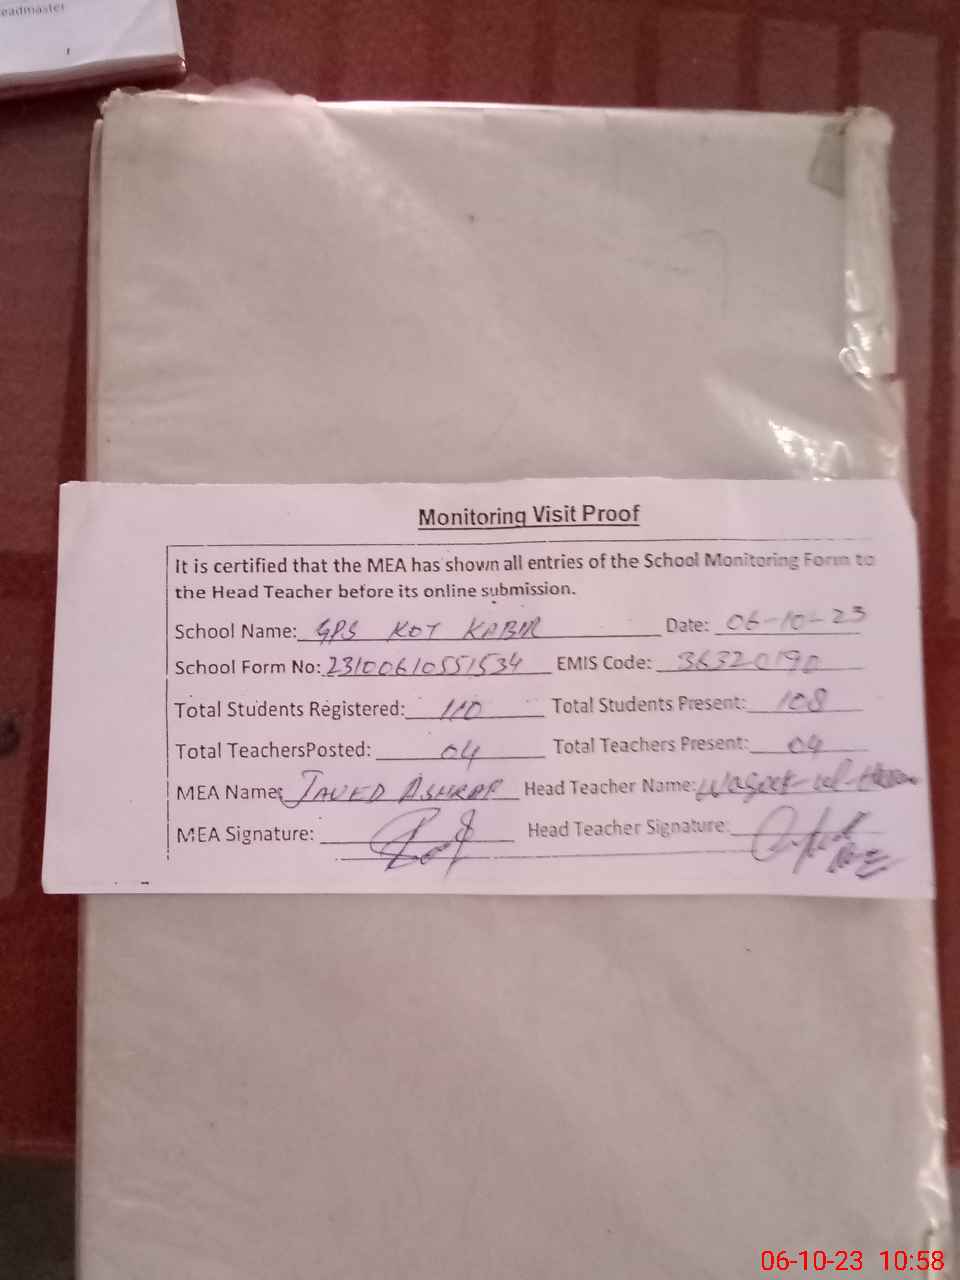 eadmaster
Monitoring Visit Proof
It is certified that the MEA has shown all entries of the School Monitoring Form to
the Head Teacher before its online submission.
School Name: GPS KOT KABIR Date: 06-10-23
School Form No: 23100610551534 EMIS Code: 36320190
Total Students Registered: 110 Total Students Present: 108
Total TeachersPosted: 04 Total Teachers Present: 04
MEA Name: JAVED ASHRAF Head Teacher Name: ul-
MEA Signature: Head Teacher Signature:
06-10-23 10:58